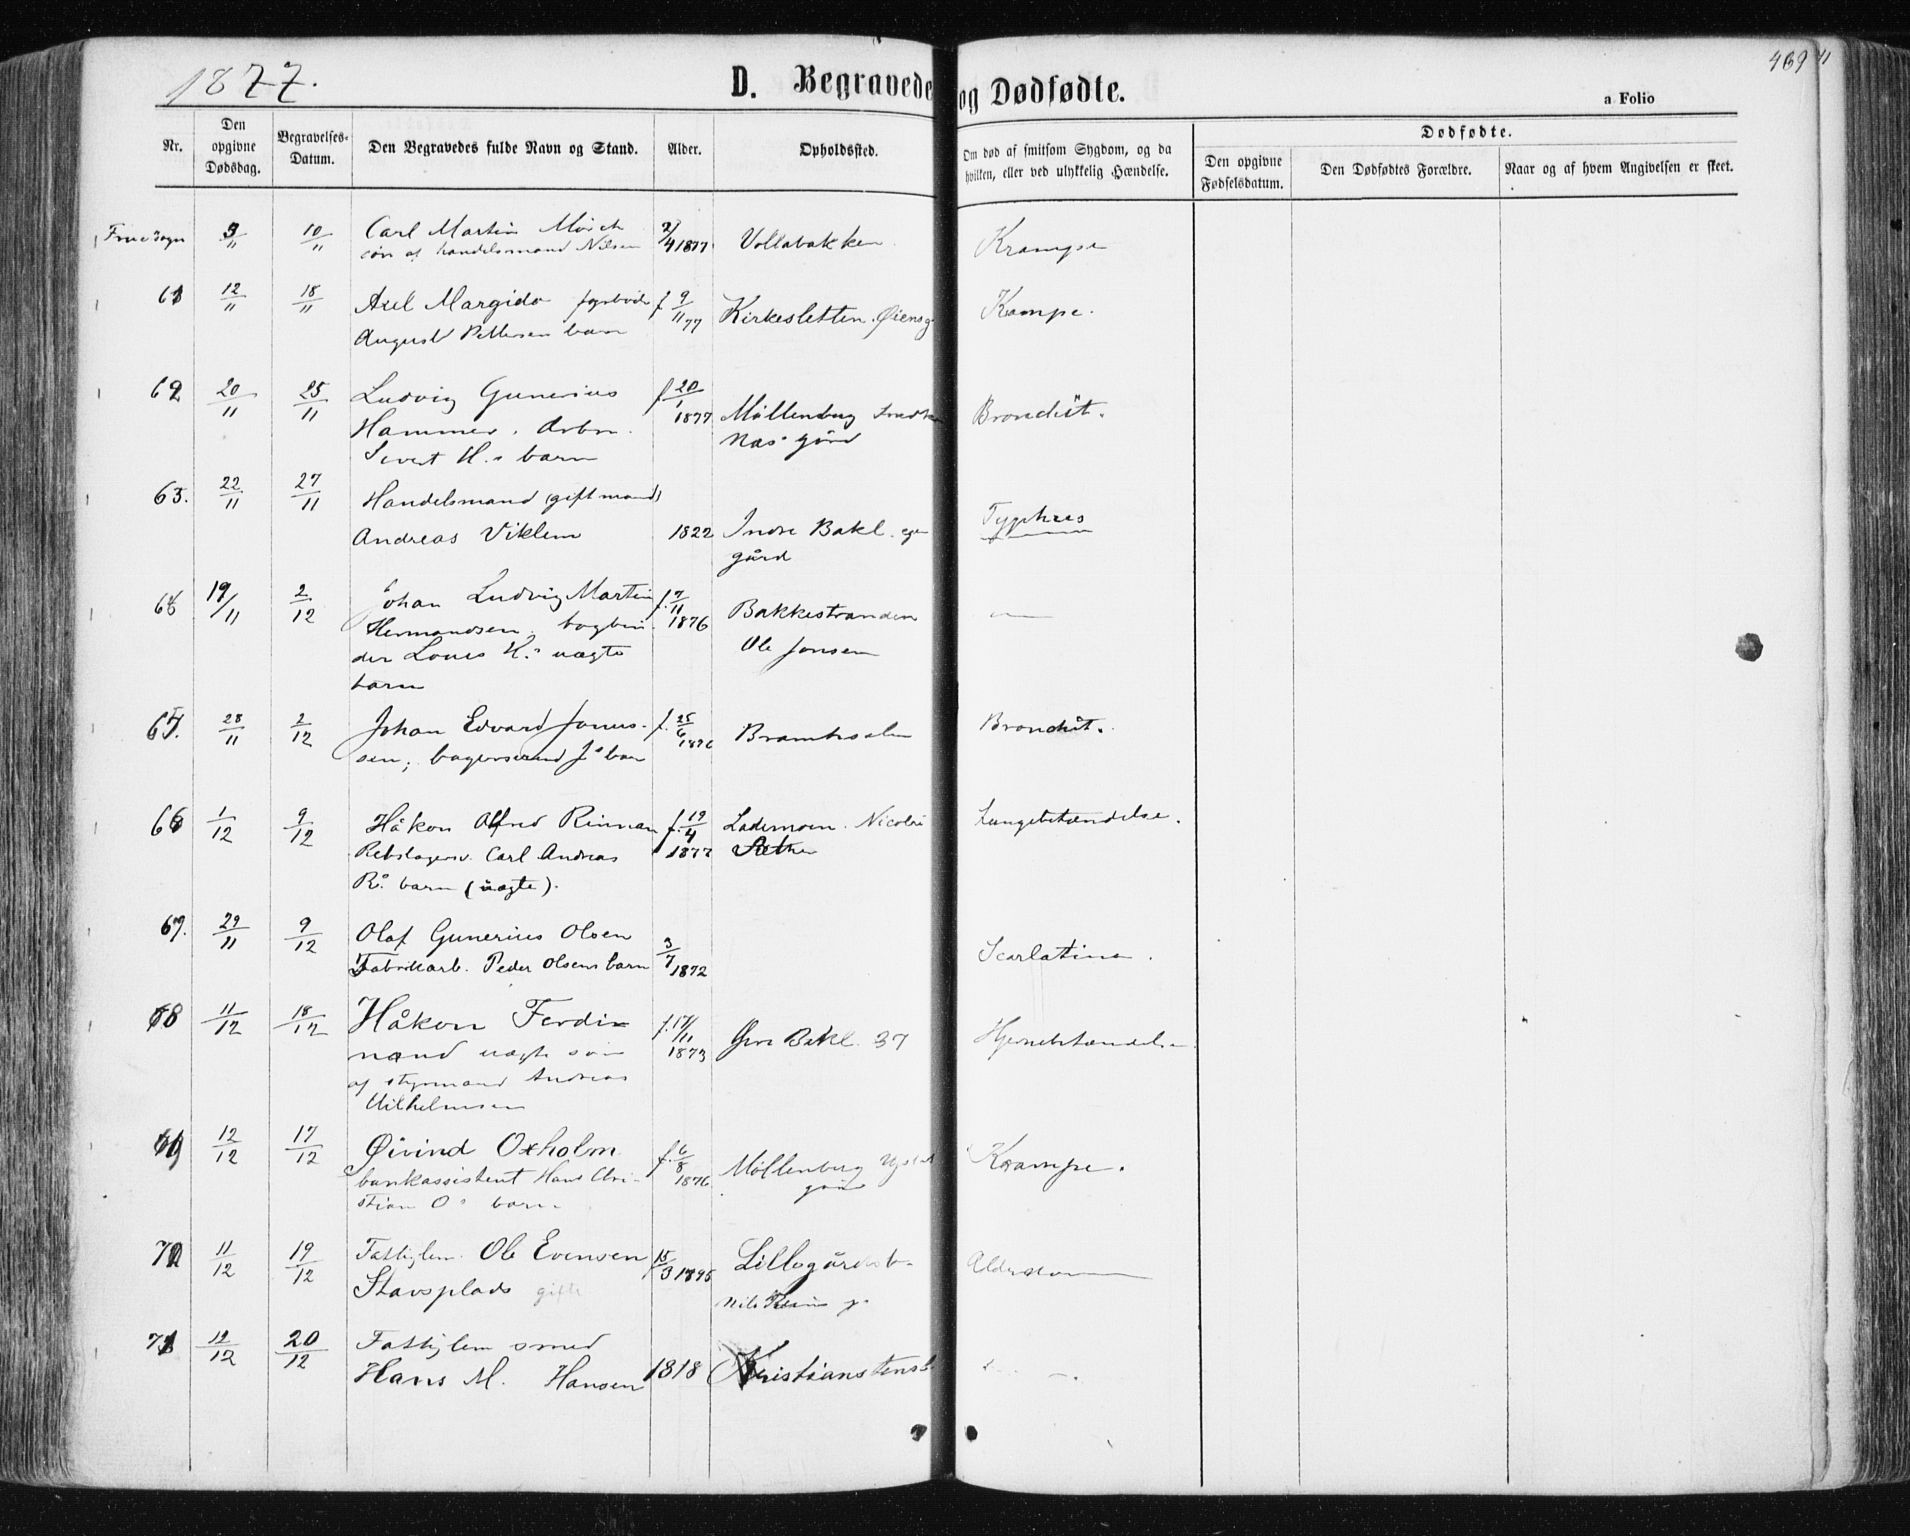 1877.
D. Begravede og Dødfødte.
469
a Folio
Nr.
Den opgivne Dødsdag.
Begravelses-Datum.
Den Begravedes fulde Navn og Stand.
Alder.
Opholdssted.
Om død af smitsom Sygdom, og da
hvilken, eller ved ulykkelig Hændelse.
Dødfødte.
Den opgivne Fødselsdatum.
Den Dødfødtes Forældre.
Naar og af hvem Angivelsen er skeet.
Frue sogn 3/11 10/11 Carl Martin Mörch 2/4 1877 Vollabakken Krampe
søn af handelsmand Nilsen
61 12/11 18/11 Axel Margido f 9/11 77 Kirkesletten. Øiens g Kampe.
August Pettersen barn
62 20/11 25/11 Ludvig Gunerius f 20/1 1877 Møllenberg Bronchit.
Hammer. Arbm. gård
Sivert H.s barn
63. 22/11 27/11 Handelsmand (gift mand)
Andreas Viklem 1822 Indre Bakl. Typhus
gård
19/11 2/12 Johan Ludvig Martin f. 7/11 1876 Bakkestranden —
Hermandsen, bogbin Ole Jonsen
der Louis H.s uægte
barn
28/11 2/12 Johan Edvard f. 25/6 1876 Bronchit.
sen,
66 1/12 9/12 Håkon Alfred Rinnan f. 19/4 1877 Lademoen. Lungebetændelse.
Rebslagersv. Carl Andreas
R.s barn (uægte).
67. 29/11 9/12 Olaf Gunerius Olsen
Fabrikarb. Peder Olsens barn 3/7 1872 Scarlatina.
68 11/12 18/12 Håkon Ferdi- f. 17/11 1873 Øvre Bakl. 37 Hjernebetændelse
nand uægte søn
af styrmand Andreas
Vilhelmsen
69 12/12 17/12 Øivind Oxholm f. 6/8 1876 Møllenberg Krampe.
bankassistent Hans Chri- gård
stian O.s barn
70 11/12 19/12 Fattiglem. Ole Evensen 15/3 Lillegårdsb. Alderdom
Stavsplads gift Nils
71 12/12 20/12 Fattiglem smed
Hans M. Hansen 1818 Kristianstensb